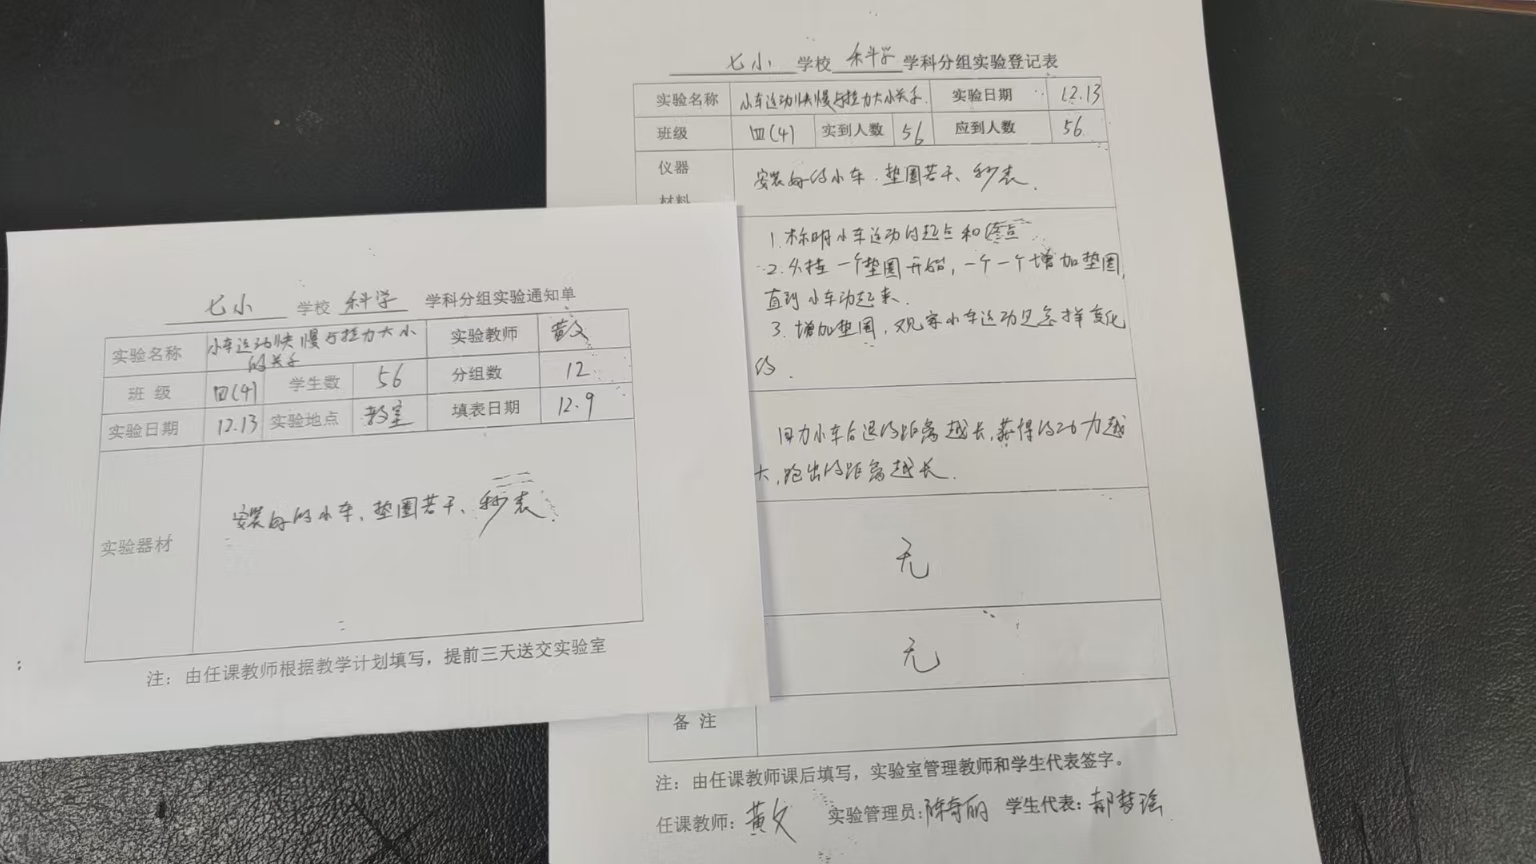 七小 学校 科学 学科分组实验通知单
实验名称 小车运动快慢与拉力大小的关系 实验教师 黄文
班 级 四(4) 学生数 56 分组数 12
实验日期 12.13 实验地点 教室 填表日期 12.9
实验器材 安装好的小车、垫圈若干、秒表.
注：由任课教师根据教学计划填写，提前三天送交实验室
七小 学校 科学 学科分组实验登记表
实验名称 小车运动快慢与拉力大小关系. 实验日期 12.13
班级 四(4) 实到人数 56 应到人数 56
仪器
材料
安装好的小车、垫圈若干、秒表.
1.标明小车运动的起点和终点
2.从挂一个垫圈开始,一个一个增加垫圈,
直到小车动起来.
3.增加垫圈,观察小车运动是怎样变化
的.
回力小车后退的距离越长,获得的动力越
大,跑出的距离越长.
无
无
备 注
注：由任课教师课后填写，实验室管理教师和学生代表签字。
任课教师：黄文 实验管理员：陈奇丽 学生代表：郝梦瑶